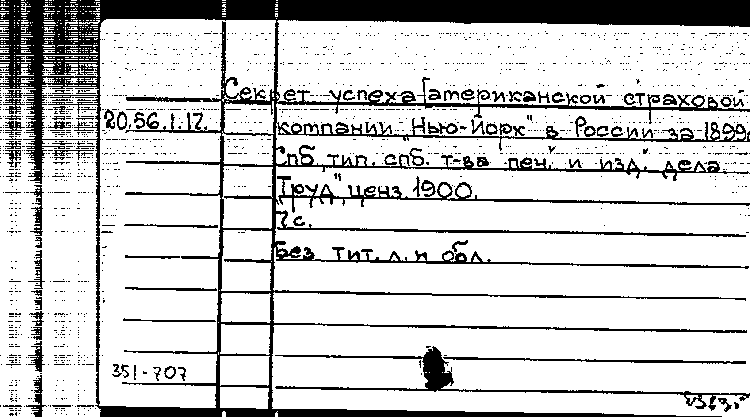 Секрет успеха [американской страховой
20.56.1.12. компании "Нью-Йорк" в России за 1899г
Спб, тип. спб. т-ва печ. и изд. дела
"Труд", ценз. 1900.
7с.
Без тит. л. и обл.
351-707